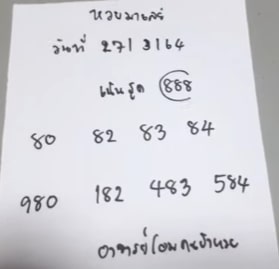 หวยมาเลย์
วันที่ 27/3/64
เน้นรูด 888
80 82 83 84
980 182 483 584
อาจารย์